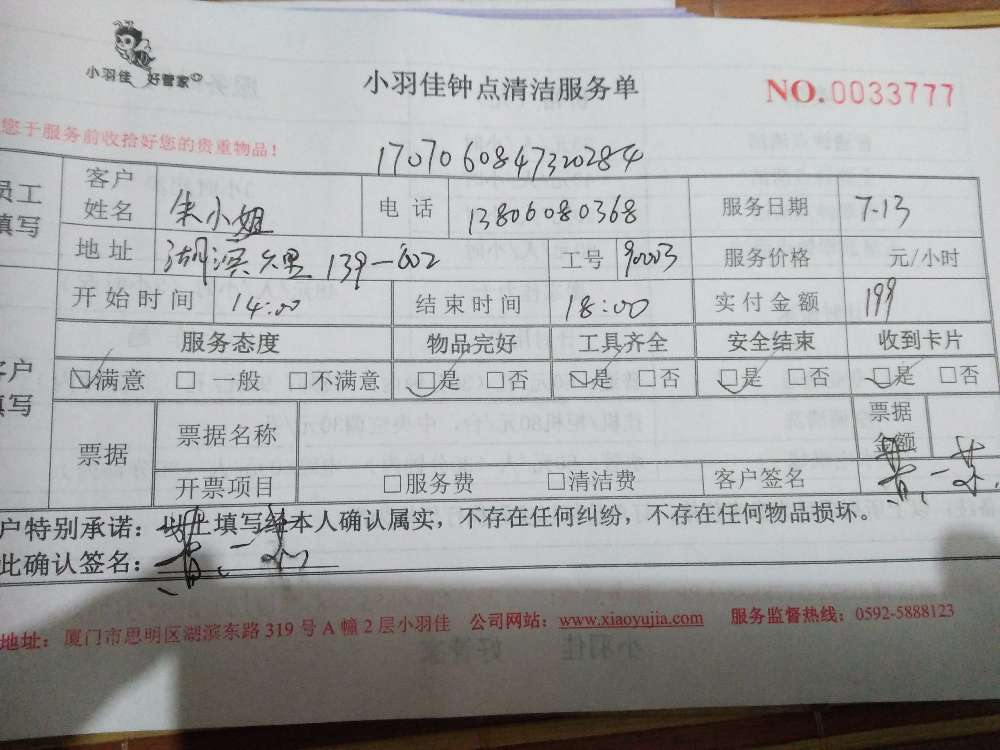 小羽佳 好管家
小羽佳钟点清洁服务单
NO.0033777
您于服务前收拾好您的贵重物品!
1707060847320284
员工填写 客户姓名 朱小姐 电话 13806080368 服务日期 7.13
地址 湖滨六里 139-602 工号 90003 服务价格 元/小时
开始时间 14:00 结束时间 18:00 实付金额 199
客户填写 服务态度 物品完好 工具齐全 安全结束 收到卡片
☑满意 □ 一般 □不满意 ☑是 □否 ☑是 □否 ☑是 □否 ☑是 □否
票据 票据名称 票据金额
开票项目 □服务费 □清洁费 客户签名
户特别承诺:以上填写经本人确认属实,不存在任何纠纷,不存在任何物品损坏。
此确认签名:
地址:厦门市思明区湖滨东路 319 号 A 幢 2 层小羽佳 公司网站:www.xiaoyujia.com 服务监督热线:0592-5888123